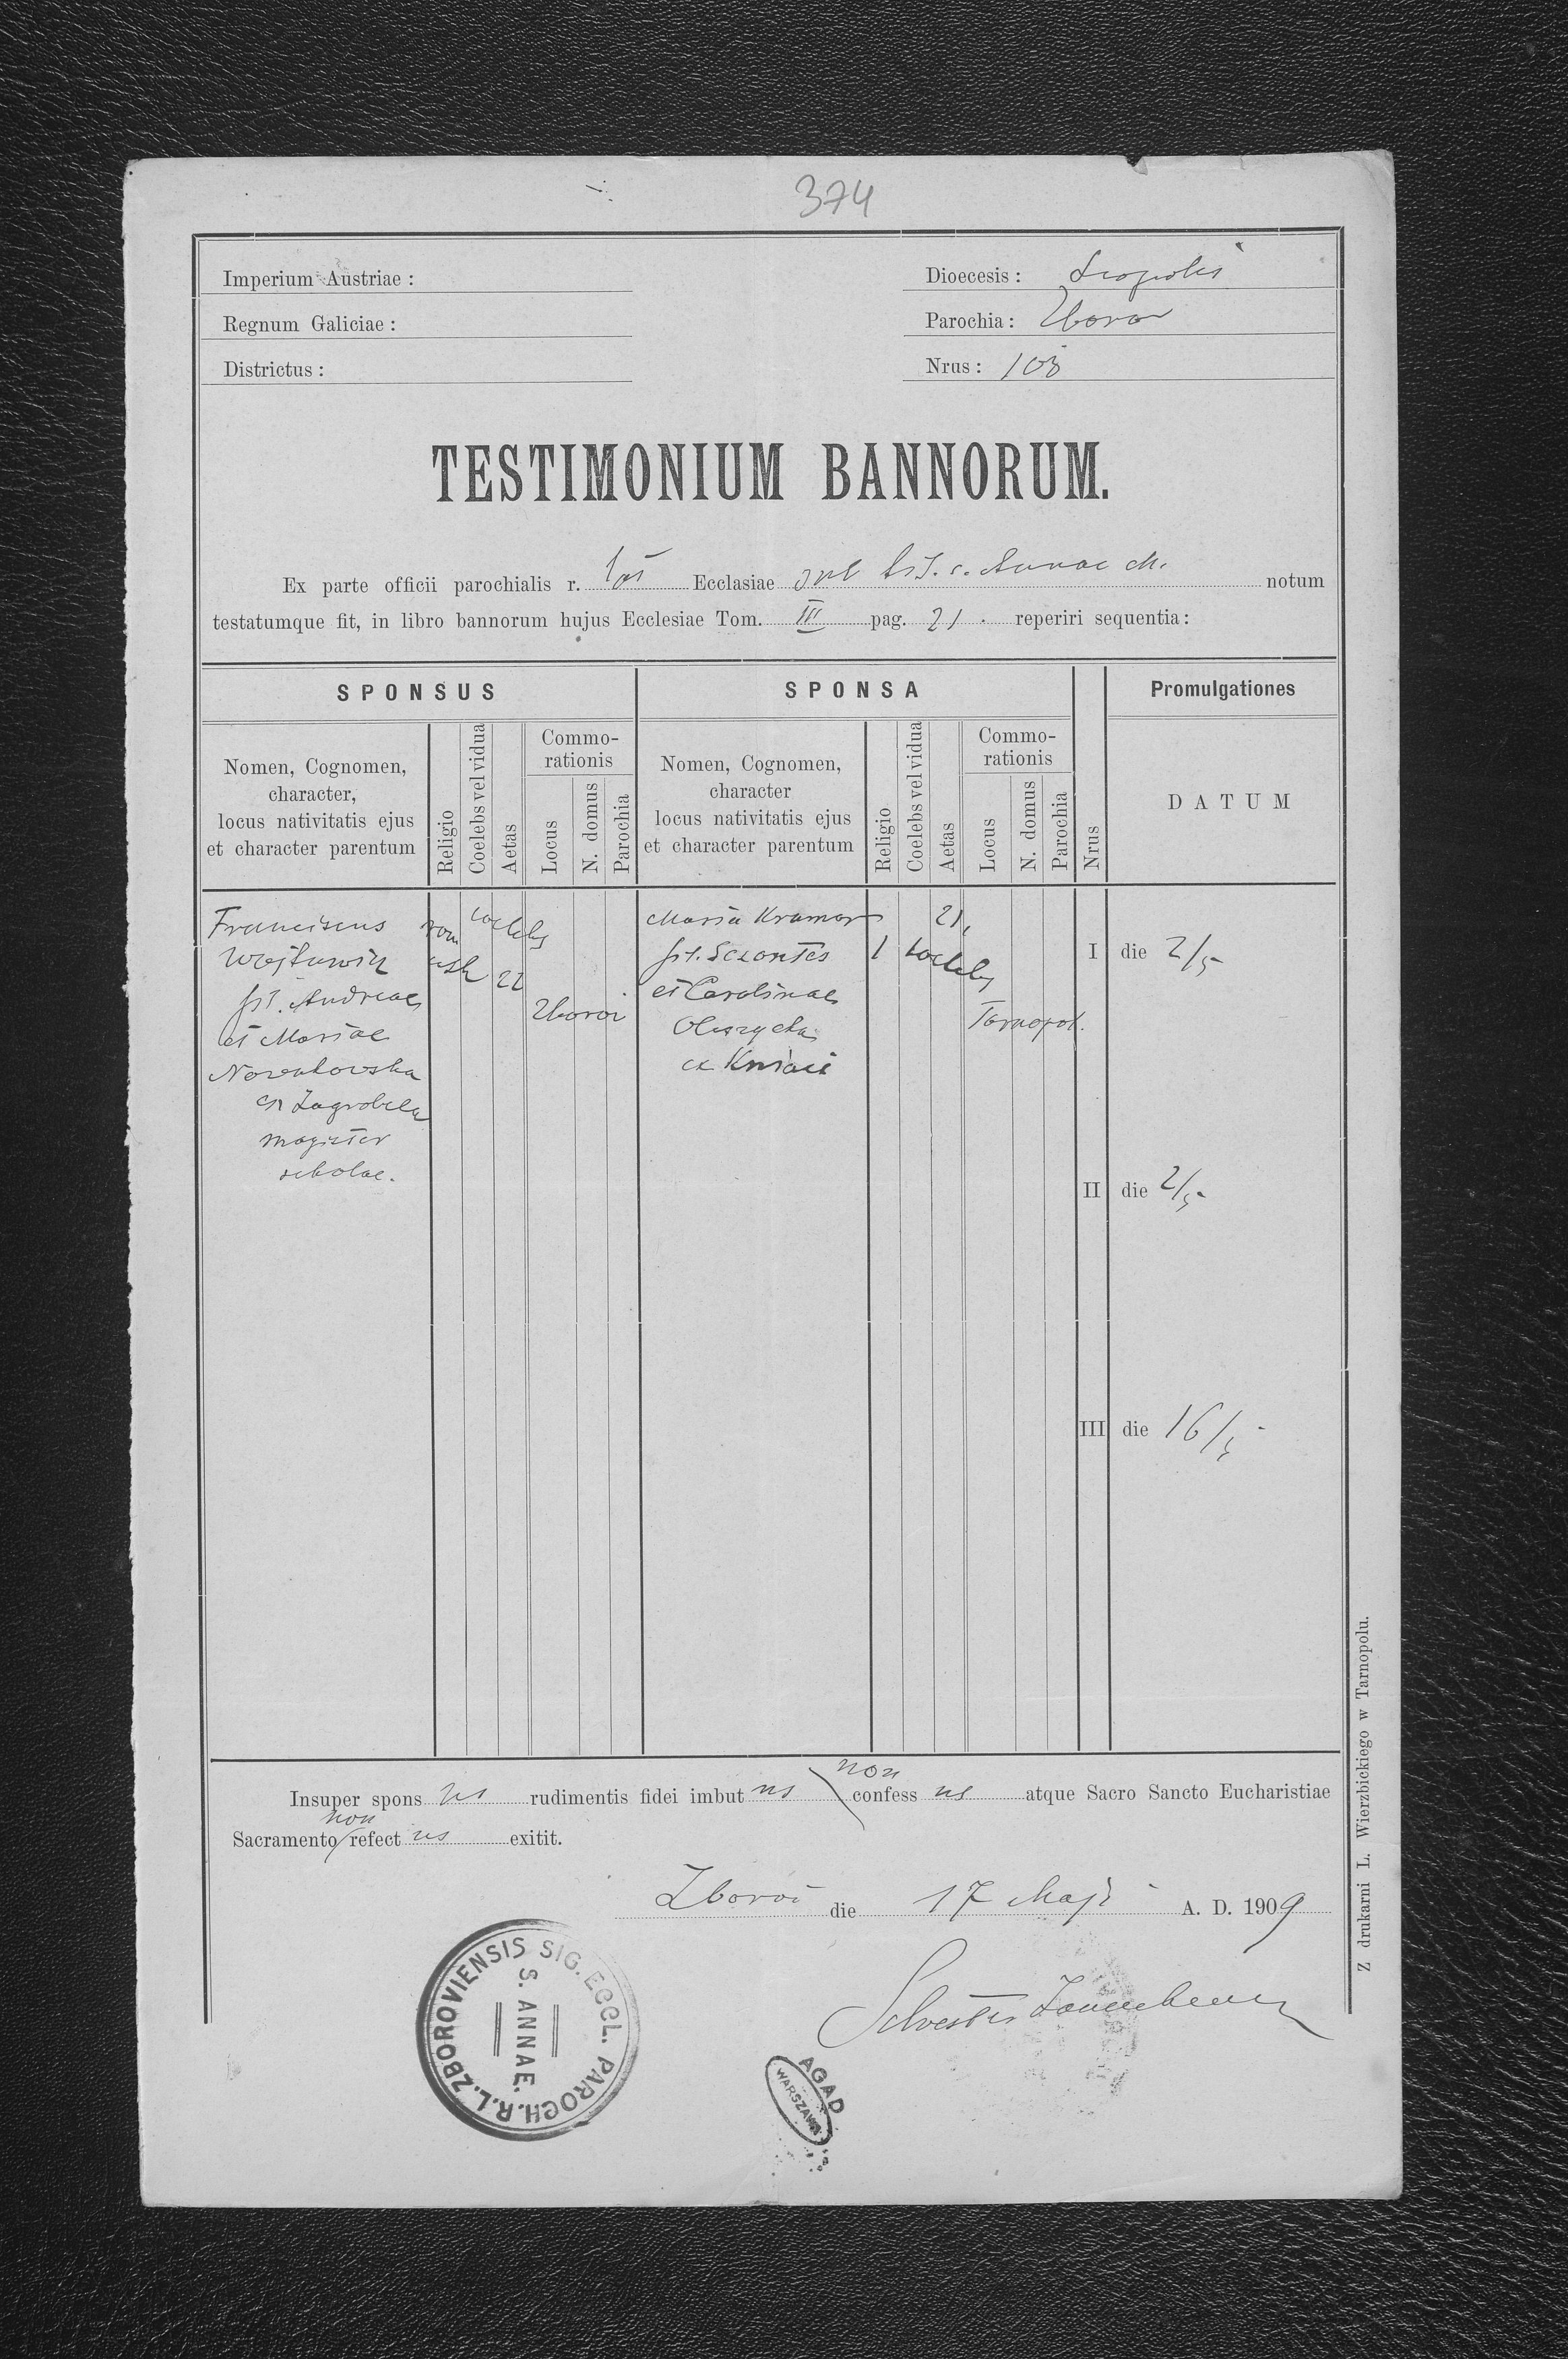 374
Imperium Austriae :
Dioecesis : Leopolis
Regnum Galiciae :
Parochia : Zborow
Districtus :
Nrus : 108
TESTIMONIUM BANNORUM.
Ex parte officii parochialis r. lat Ecclasiae sub tit. s. Annae M. notum
testatumque fit, in libro bannorum hujus Ecclesiae Tom. III pag. 21 . reperiri sequentia:
SPONSUS
SPONSA
Promulgationes
Nomen, Cognomen,
character,
locus nativitatis ejus
et character parentum
Religio
Coelebs vel vidua
Aetas
Commo-
rationis
Locus
N. domus
Parochia
Nomen, Cognomen,
character
locus nativitatis ejus
et character parentum
Religio
Coelebs vel vidua
Aetas
Commo-
rationis
Locus
N. domus
Parochia
Nrus
DATUM
Franciscus
Wojtuwicz
fil. Andreae
et Mariae
Nowakowska
ex Zagrobela
magister
scholae.
rom
cath
coelebs
22
Zborow
Maria Kramar
fil.
et Carolinae
ex
coelebs
21,
Tarnopol.
I die 2/5
II die 2/5
III die 16/5
Insuper spons us rudimentis fidei imbut us non confess us atque Sacro Sancto Eucharistiae
Sacramento non refect us exitit.
Zborow die 17 Maji A. D. 1909
Silvester
SIG. ECCL. PAROCH. R. L. ZBOROVIENSIS
S. ANNAE.
AGAD
WARSZAWA
Z drukarni L. Wierzbickiego w Tarnopolu.